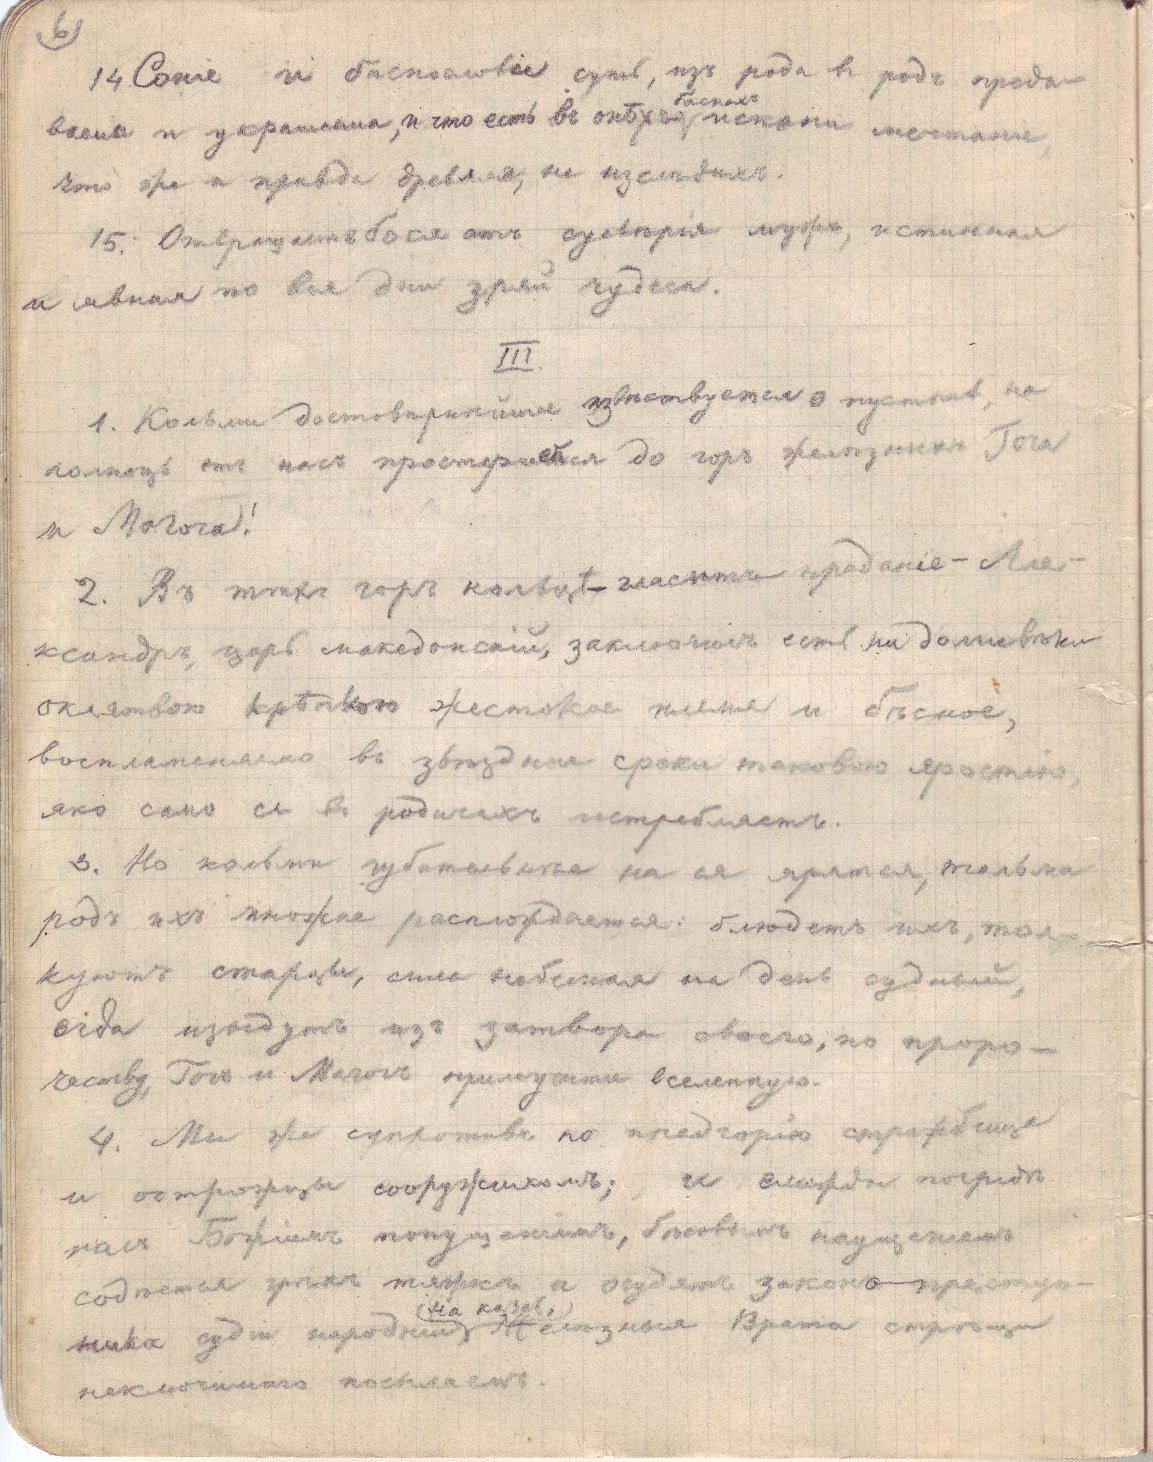 6
14 Сонiе и баснословiе суть, изъ рода въ родъ преда-
ваема и украшаема, и что есть въ онѣхъ баснахъ искони мечтанiе,
что же и правда древляя, не изслѣдихъ.
15. Отвращаетъ бося отъ суевѣрiя мужъ, истинная
и явная по вся дни зряй чудеса.
III.
1. Кольми достовѣрнѣйше извѣствуется о пустынѣ, на
полнощь отъ насъ простершейся до горъ желѣзныхъ Гога
и Магога!
2. Въ тѣхъ горъ кольцѣ – гласитъ преданiе – Але-
ксандръ, царь македонскiй, заключилъ есть на долгiе вѣки
оклятвою крѣпкою жестокое племя и бѣсное,
воспламеняемо въ звѣздные сроки таковою яростiю,
яко само ся въ родичахъ истребляетъ.
3. Но кольми губительнѣе на ся ярятся, тольма
родъ ихъ множае расплождается: блюдетъ ихъ, тол-
куютъ старцы, сила небесная на день судный,
егда изыдутъ изъ затвора своего, по проро-
честву, Гогъ и Магогъ примучити вселенную.
4. Мы же супротивъ по предгорiю стражбища
и острожцы сооружихомъ; и егда посредѣ
насъ Божiимъ попущенiемъ, бѣсовымъ наущенiемъ
содѣется грѣхъ тяжкъ и осудятъ законо-преступ-
ника судiи народнiи, (на казнь) Желѣзныя Врата стрещи
неключимаго посылаемъ.